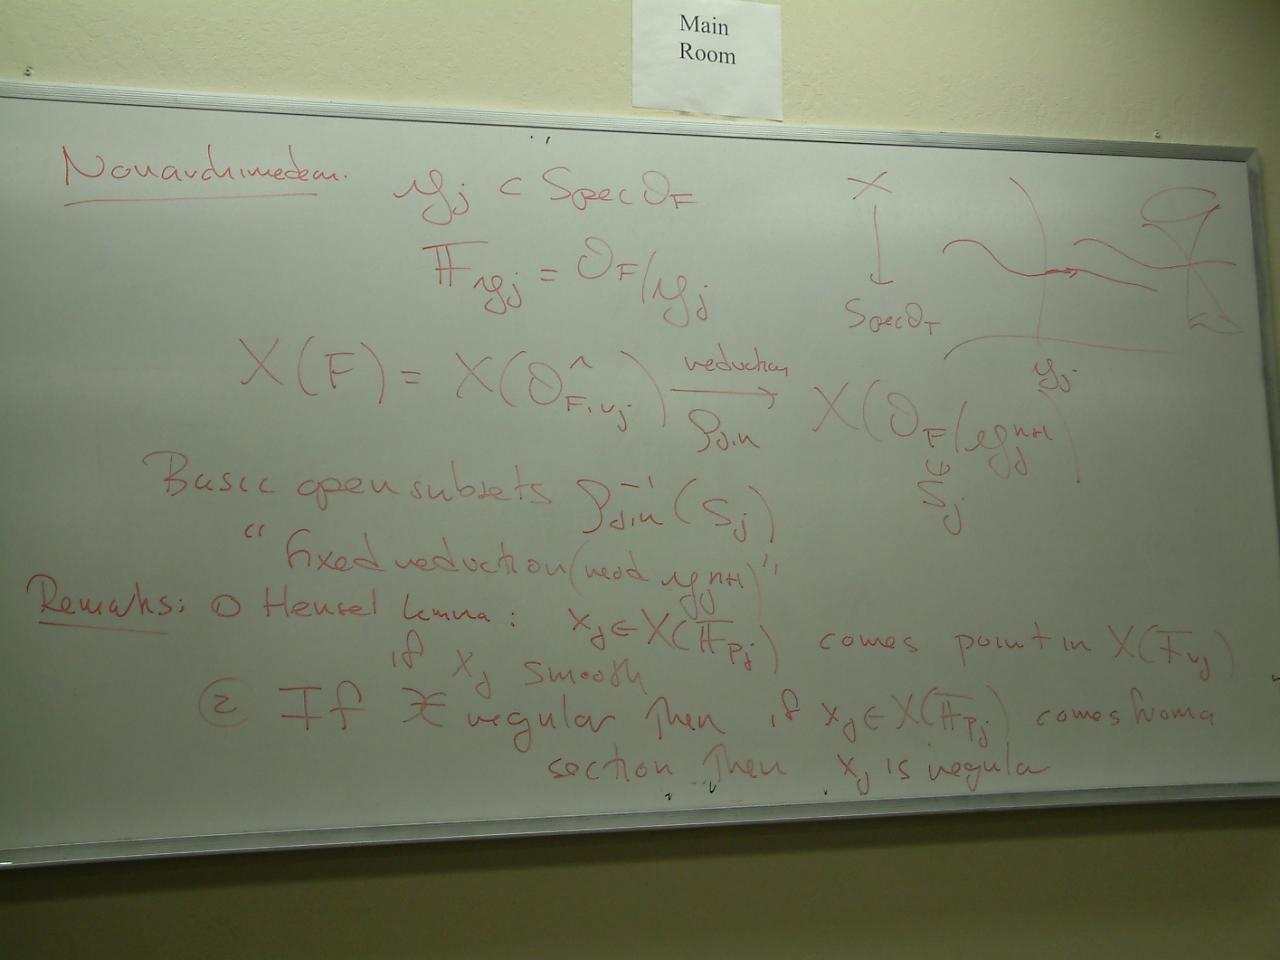 Main
Room
Nonarchimedean. 𝔭_j ⊂ Spec O_F
𝔽_{𝔭_j} = O_F/𝔭_j
X
↓
Spec O_F
𝔭_j
X(F) = X(Ô_{F,v_j}) →^{reduction}_{ρ_{j,n}} X(O_F/𝔭_j^{n+1})
S_j
Basic open subsets ρ_{j,n}^{-1}(S_j)
"fixed reduction (mod 𝔭_j^{n+1})"
Remarks: ① Hensel Lemma: x_j ∈ X(𝔽_{p_j}) comes point in X(F_{v_j})
if x_j smooth
② If 𝒳 regular then if x_j ∈ X(𝔽_{p_j}) comes from a
section then x_j is regular